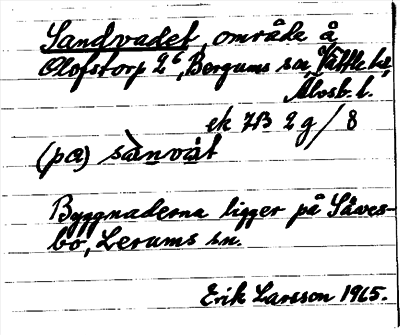 Sandvadet, område å
Olofstorp 2⁶, Bergums sn, Vättle hd,
Älvsb. l.
ek 7B 2g/8
(pa) sànvàt
Byggnaderna ligger på Säves-
bo, Lerums sn.
Erik Larsson 1965.